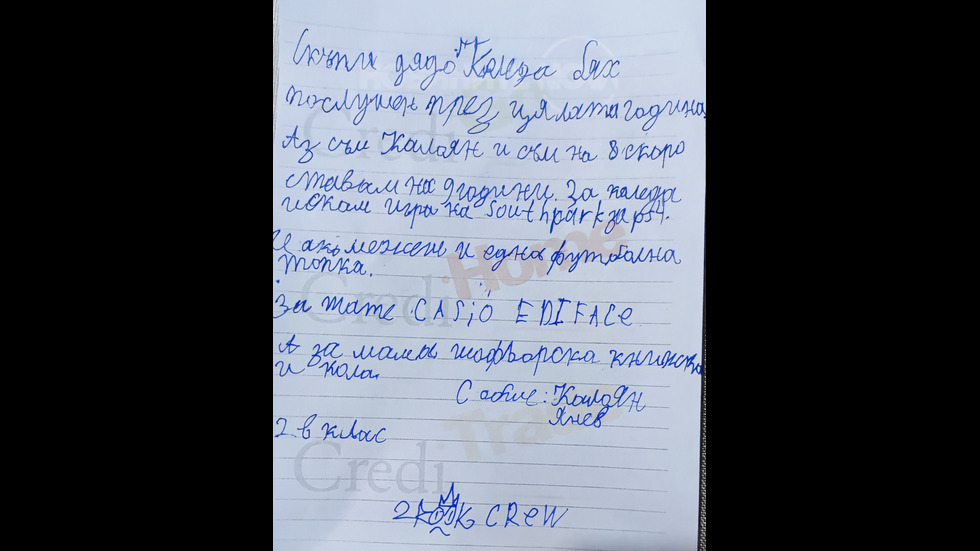 Скъпи дядо Коледа бях
послушен през цялата година.
Аз съм Калоян и съм на 8 скоро
ставам на 9 години. За коледа
искам игра на south park за ps4.
И ако може и една футболна
топка.
За тате CASiO EDIFACe
А за мама шофьорска книжка
и кола.
С обич: Калоян
Янев
2 в клас
CReW
Credi Home
Credi
Trade
Credi